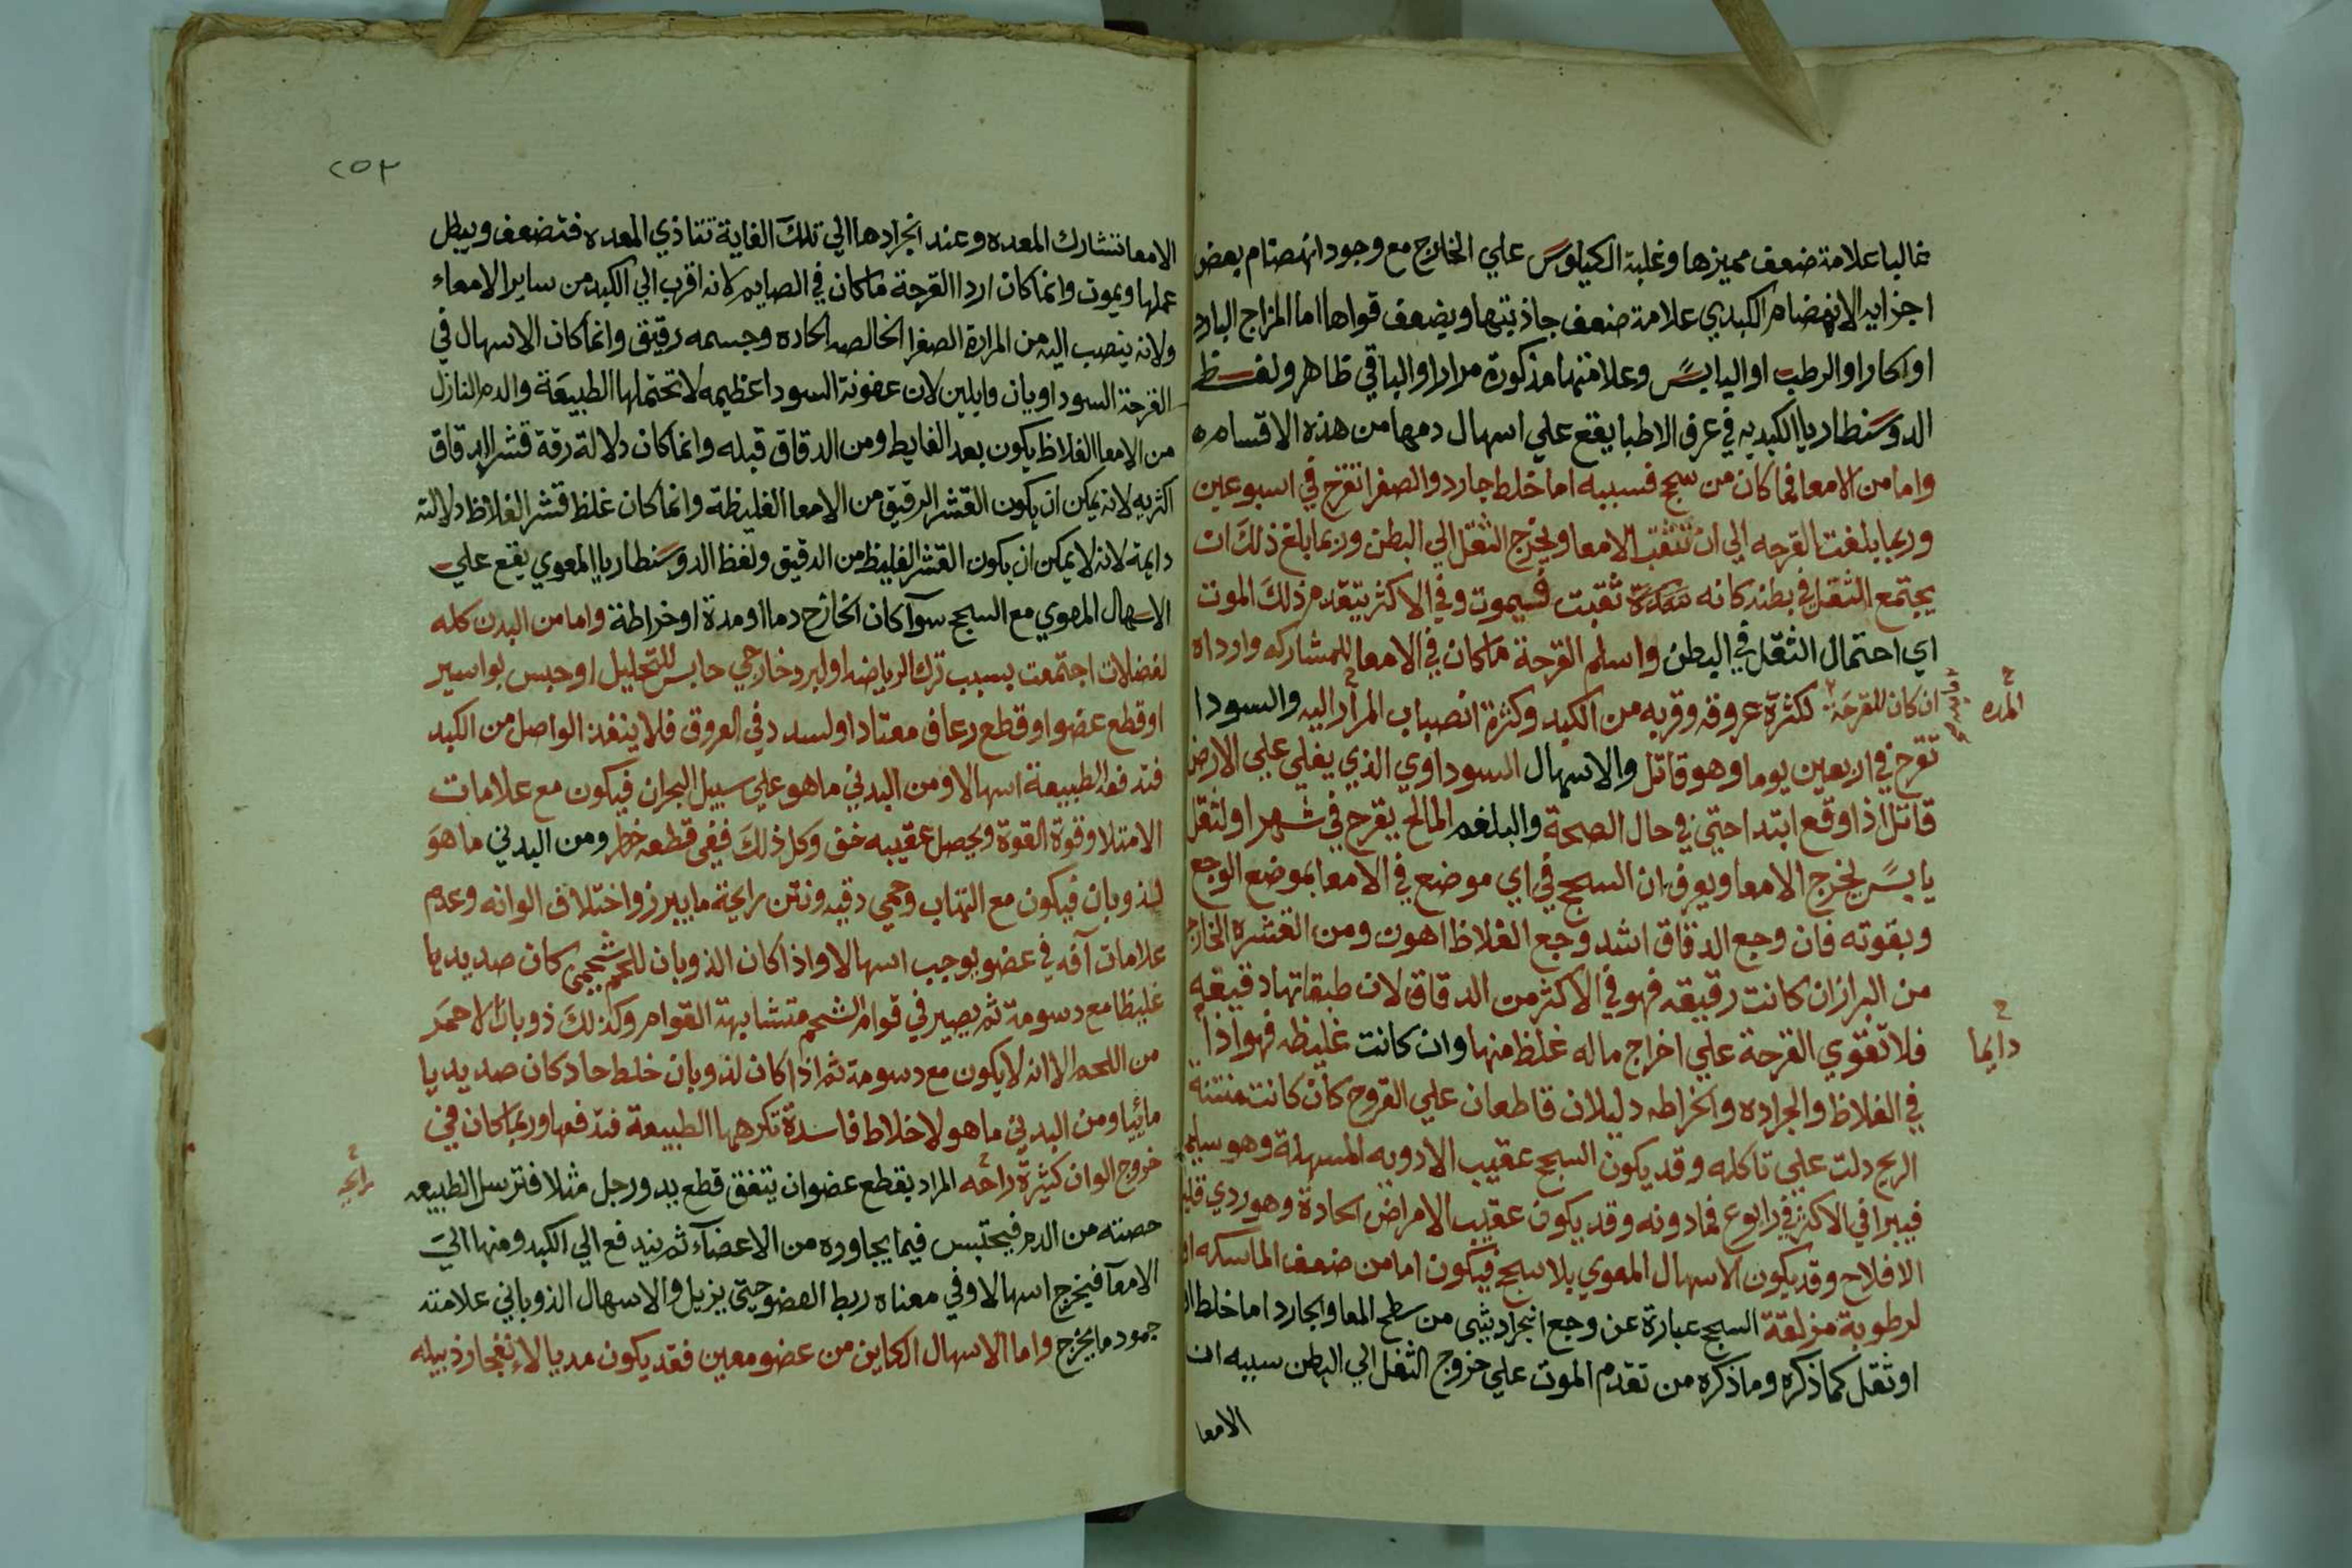 غالبا علامة ضعف مميزها وغلبة الكيلوس علي الخارج مع وجود انهضام بعض
اجزايه الانهضام الكبدي علامة ضعف جاذبتها ويضعف قواها اما المزاج البارد
او الحار او الرطب او اليابس وعلامتها مذكورة مرارا والباقي ظاهر ولفظ
الدوسنطاريا الكبديه في عرف الاطبا يقع علي اسهال دمها من هذه الاقسام
واما من الامعا فما كان من سحج فسببه اما خلط جارد والصفرا تقرح في اسبوعين
وربما بلغت القرحه الي ان تثقب الامعا ويخرج الثقل الي البطن وربما بلغ ذلك ان
يجتمع الثقل في بطنه كانه ثقبت فيموت وفي الاكثر يتقدم ذلك الموت
اي احتمال الثقل في البطن واسلم القرحة ما كان في الامعا للمشاركه وارداه
ان كان للقرحة لكثرة عروقه وقربه من الكبد وكثرة انصباب المرار اليه والسودا
المده
تقرح في اربعين يوما وهو قاتل والاسهال السوداوي الذي يغلي علي الارض
قاتل اذا وقع ابتدا حتي في حال الصحة والبلغم المالح يقرح في شهر او لثقل
يابس يخرج الامعا ويعرف ان السحج في اي موضع في الامعا بموضع الوجع
وبقوته فان وجع الدقاق اشد وجع الغلاظ اهون ومن القشره الخارج
من البراز ان كانت رقيقه فهو في الاكثر من الدقاق لان طبقاتها دقيقه
فلا تقوي القرحة علي اخراج ماله غلظ منها وان كانت غليظه فهو اذا
دايما
في الغلاظ والجراده والخراطه دليلان قاطعان علي القروح كان كانت منتنة
الريح دلت علي تاكله وقد يكون السحج عقيب الادويه المسهلة وهو سليم
فيبرا في الاكثر في رابوع فما دونه وقد يكون عقيب الامراض الحادة وهو ردي قليل
الافلاح وقد يكون الاسهال المعوي بلا سحج فيكون اما من ضعف الماسكه او
لرطوبة مزلقة السحج عبارة عن وجع انجراد شي من سطح المعا والجارد اما خلط
او ثقل كما ذكره وما ذكره من تقدم الموت علي خروج الثفل الي البطن سببه ان
الامعا
٢٥٣
الامعا تشارك المعده وعند انجرادها الي تلك الغاية تتاذي المعده فتضعف ويبطل
عملها ويموت وانما كان اردا القرحة ما كان في الصايم لانه اقرب الي الكبد من ساير الامعاء
ولانه ينصب اليه من المرارة الصفرا الخالصه الحاده وجسمه رقيق وانما كان الاسهال في
القرحة السوداويان قايلين لان عفونة السودا عظيمه لا تحتملها الطبيعة والدم النازل
من الامعا الغلاظ يكون بعد الغايط ومن الدقاق قبله وانما كان دلالة رقة قشر الدقاق
اكثريه لانه يمكن ان يكون القشر الرقيق من الامعا الغليظة وانما كان غلظ قشر الغلاظ دلالته
دايمة لانه لا يمكن ان يكون القشر الغليظ من الدقيق ولفظ الدوسنطاريا المعوي يقع علي
الاسهال المعوي مع السحج سوآ كان الخارج دما او مدة او خراطة واما من البدن كله
لفضلات اجتمعت بسبب ترك الرياضه او لبرد خارجي حابس للتحليل او حبس بواسير
او قطع عضو او قطع رعاف معتاد او لسدد في العروق فلا ينفذ الواصل من الكبد
فتدفعه الطبيعة اسهالا ومن البدني ما هو علي سبيل البحران فيكون مع علامات
الامتلا وقوة القوة ويحصل عقيبه خف وكل ذلك ففي قطعه خطر ومن البدني ما هو
لذوبان فيكون مع التهاب وحمي دقيه ونتن رايحة ما يبرز واختلاف الوانه وعدم
علامات آفه في عضو يوجب اسهالا واذا كان الذوبان للحم شحمي كان صديديا
غليظا مع دسومة ثم يصير في قوام الشحم متشابهة القوام وكذلك ذوبان الاحمر
من اللحم الا انه لا يكون مع دسومة ثم اذا كان لذوبان خلط حاد كان صديديا
مائيا ومن البدني ما هو لاخلاط فاسدة تكرهها الطبيعة فتدفعها وربما كان في
خروج الوان كثيرة راحه المراد بقطع عضو ان يتفق قطع يد ورجل مثلا فترسل الطبيعه
رايحه
حصته من الدم فيحتبس فيما يجاوره من الاعضآء ثم يندفع الي الكبد ومنها الي
الامعآ فيخرج اسهالا وفي معناه ربط العضو حتي يزيل والاسهال الذوباني علامته
جمود ما يخرج واما الاسهال الكاين من عضو معين فقد يكون مديا لانفجار دبيله